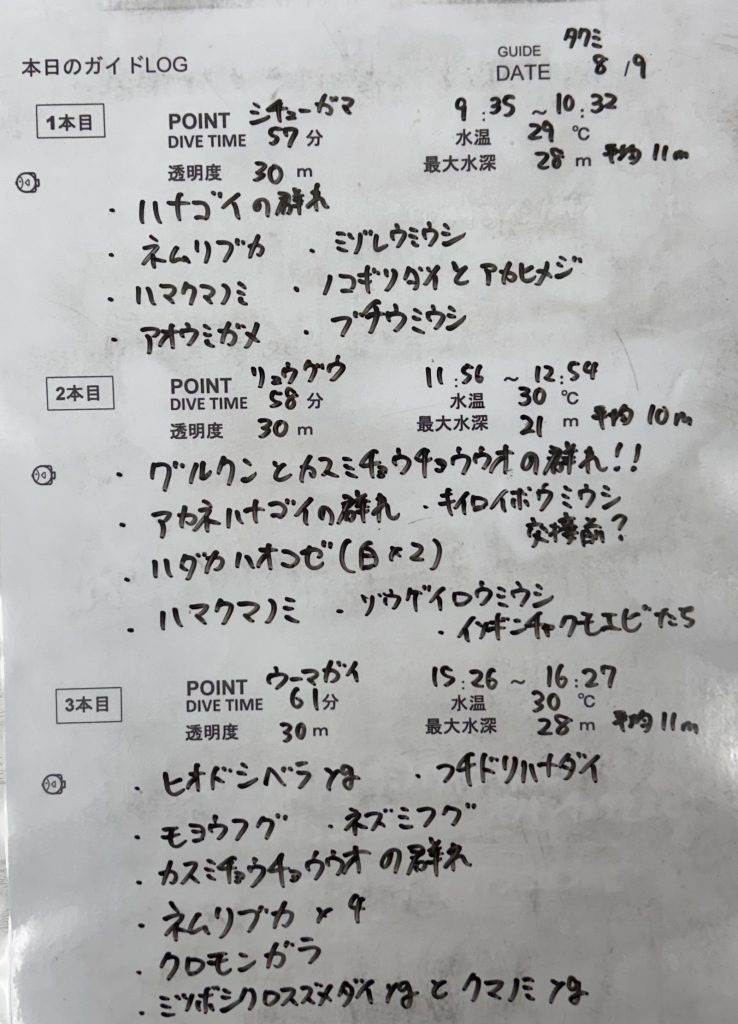 本日のガイドLOG
GUIDE タクミ
DATE 8/9
1本目
POINT シチューガマ 9:35 ~10:32
DIVE TIME 57分 水温 29 ℃
透明度 30 m 最大水深 28 m 平均11m
・ハナゴイの群れ
・ネムリブカ ・ミゾレウミウシ
・ハマクマノミ ・ノコギリダイとアカヒメジ
・アオウミガメ ・ブチウミウシ
2本目
POINT リュウグウ 11:56 ~ 12:54
DIVE TIME 58分 水温 30 ℃
透明度 30 m 最大水深 21 m 平均10m
・グルクンとカスミチョウチョウウオの群れ!!
・アカネハナゴイの群れ ・キイロイボウミウシ
交接前?
・ハダカハオコゼ(白×2)
・ハマクマノミ ・ゾウゲイロウミウシ
・イソギンチャクモエビたち
3本目
POINT ウーマガイ 15:26 ~ 16:27
DIVE TIME 61分 水温 30 ℃
透明度 30 m 最大水深 28 m 平均11m
・ヒオドシベラyg ・フチドリハナダイ
・モヨウフグ ・ネズミフグ
・カスミチョウチョウウオの群れ
・ネムリブカ×4
・クロモンガラ
・ミツボシクロスズメダイygとクマノミyg